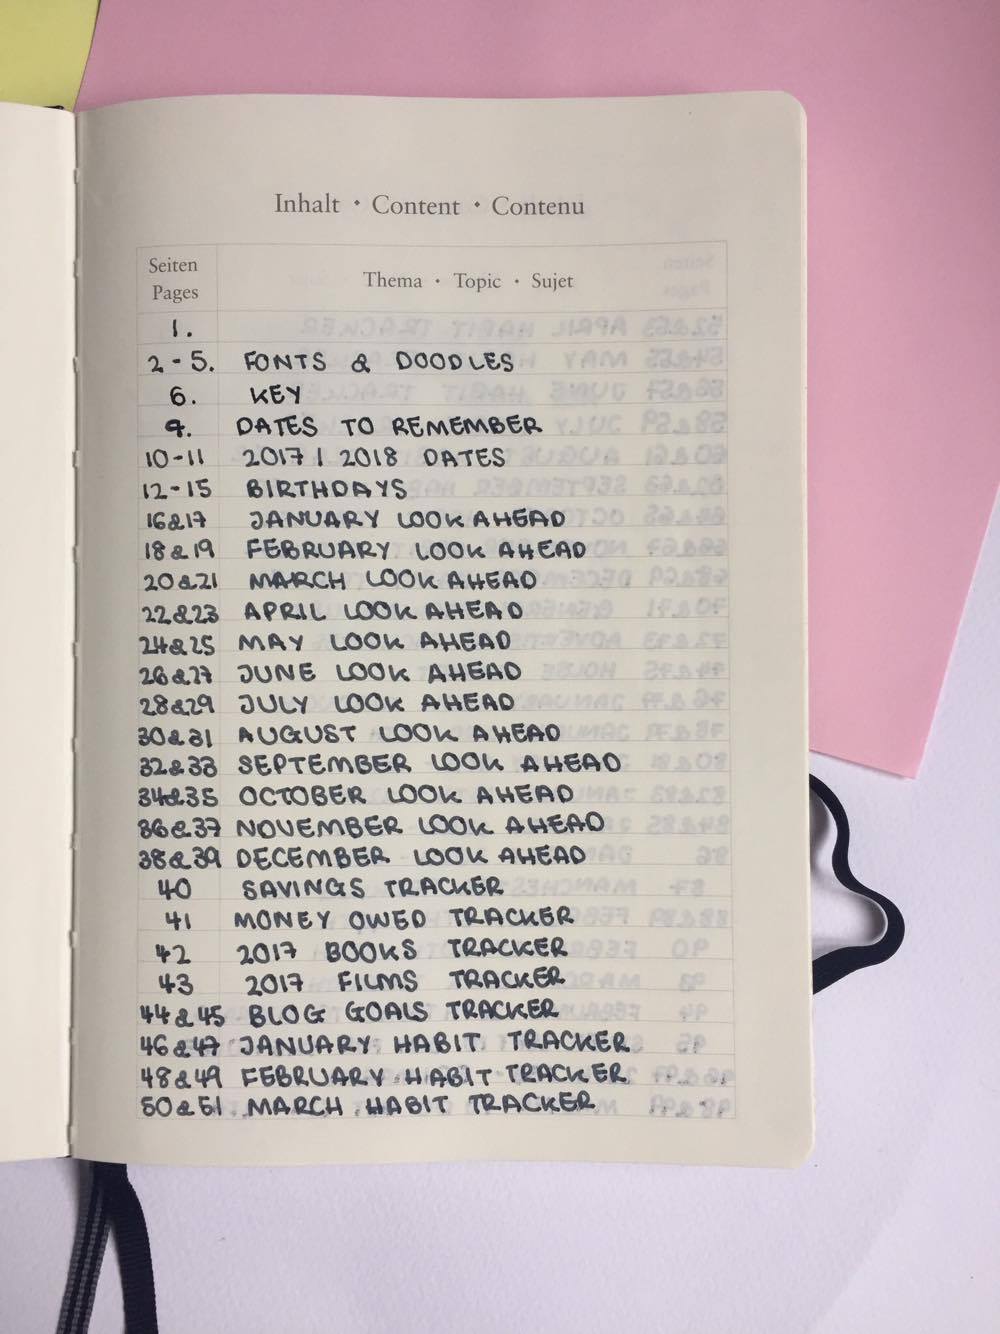 Inhalt • Content • Contenu
Seiten
Pages
Thema • Topic • Sujet
1.
2-5. FONTS & DOODLES
6. KEY
9. DATES TO REMEMBER
10-11 2017 | 2018 DATES
12-15 BIRTHDAYS
16&17 JANUARY LOOK AHEAD
18&19 FEBRUARY LOOK AHEAD
20&21 MARCH LOOK AHEAD
22&23 APRIL LOOK AHEAD
24&25 MAY LOOK AHEAD
26&27 JUNE LOOK AHEAD
28&29 JULY LOOK AHEAD
30&31 AUGUST LOOK AHEAD
32&33 SEPTEMBER LOOK AHEAD
34&35 OCTOBER LOOK AHEAD
36&37 NOVEMBER LOOK AHEAD
38&39 DECEMBER LOOK AHEAD
40 SAVINGS TRACKER
41 MONEY OWED TRACKER
42 2017 BOOKS TRACKER
43 2017 FILMS TRACKER
44&45 BLOG GOALS TRACKER
46&47 JANUARY HABIT TRACKER
48&49 FEBRUARY HABIT TRACKER
50&51 MARCH HABIT TRACKER